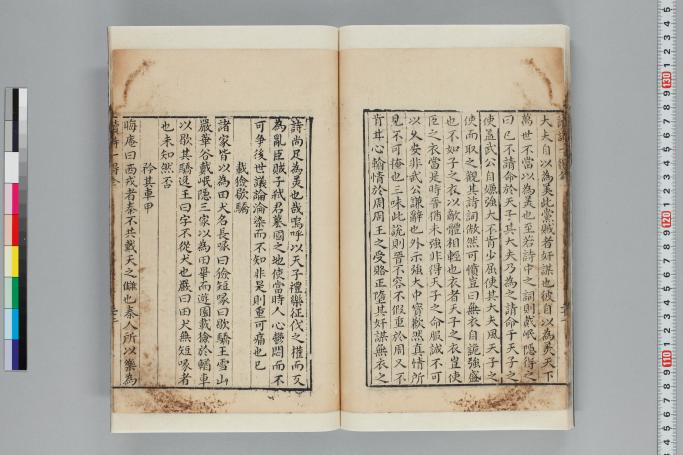 大夫自以為美此棠賊者奸謀也彼自以為美天下
萬世不當以為美也至若詩中之詞則戴岷隱得之
曰已不請命於天子其大夫乃為之請命于天子之
使盖武公自嫌強大不肯少屈使其大夫風天子之
使而取之觀其詩詞傲然可憤豈曰無衣自詭強盛
也不如子之衣以敵體相輕也衣者天子之衣豈使
臣之衣當是時晉猶未強非得天子之命服誠不可
以久安非武公謙辭也外示強大中實歉然真情所
見不可掩也三味此説則晉不容不假重於周又不
肯甘心輸情於周周王之受賂正墮其奸謀無衣之
詩尚足為美也哉嗚呼以天子禮樂征伐之權而反
為亂臣賊子弑君簒國之地使當時人心鬱悶而不
可爭後世議論淪染而不知非吴則重可痛也已
載獫歇驕
諸家皆以為田犬名長喙曰獫短喙曰歇驕王雪山
嚴華谷戴岷隱三家以為田畢而遊園載獫於輶車
以歇其驕逸王曰字不從犬也嚴曰田犬無短喙者
也未知然否
衿其車甲
晦庵曰西戎者秦不共戴天之讎也秦人所以樂為